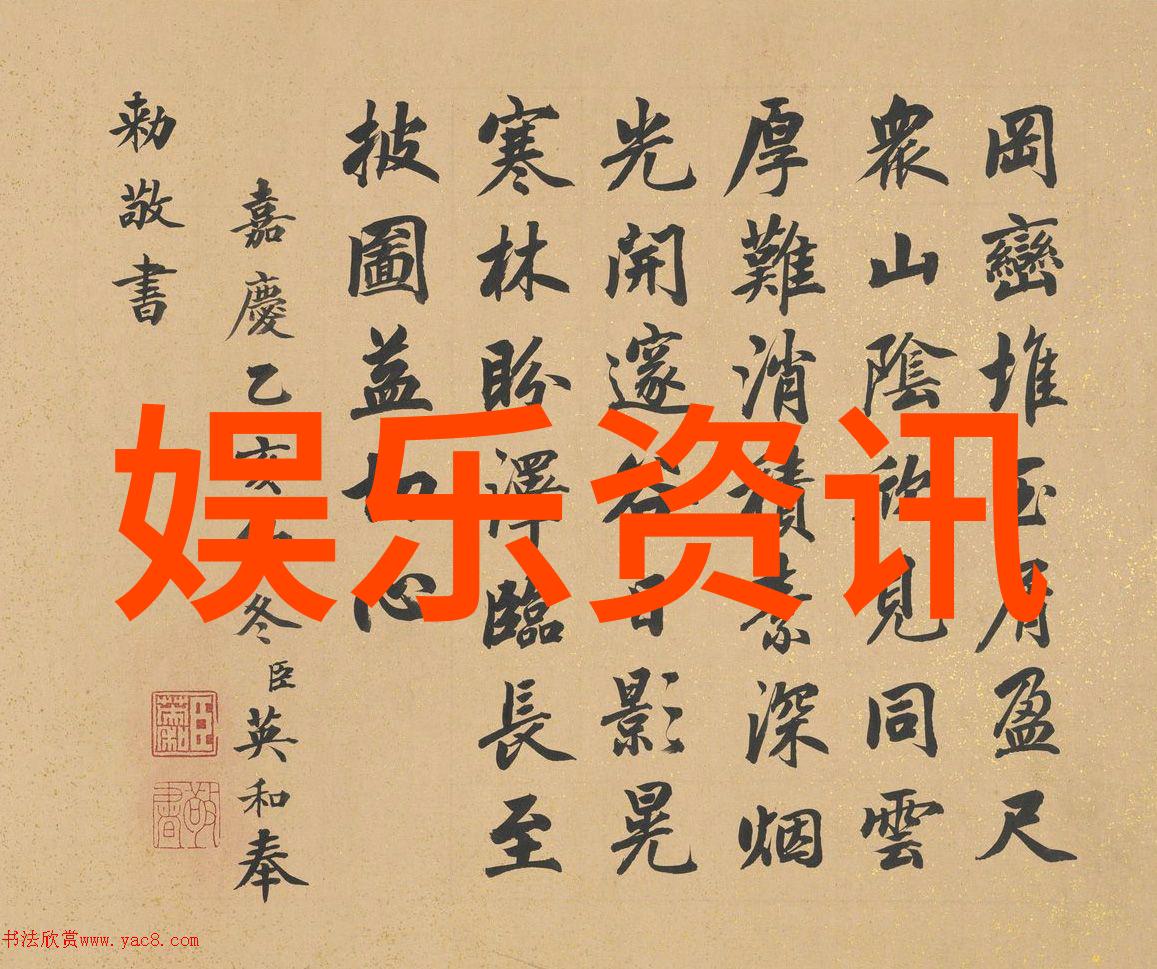 岡巒堆玉屑盈尺
衆山陰欣見同雲
厚難消積素深烟
光開邃谷日影晃
寒林盼澤臨長至
披圖益切心
嘉慶乙亥冬臣英和奉
勅敬書
敬書
娱乐资讯
书法欣赏www.yac8.com